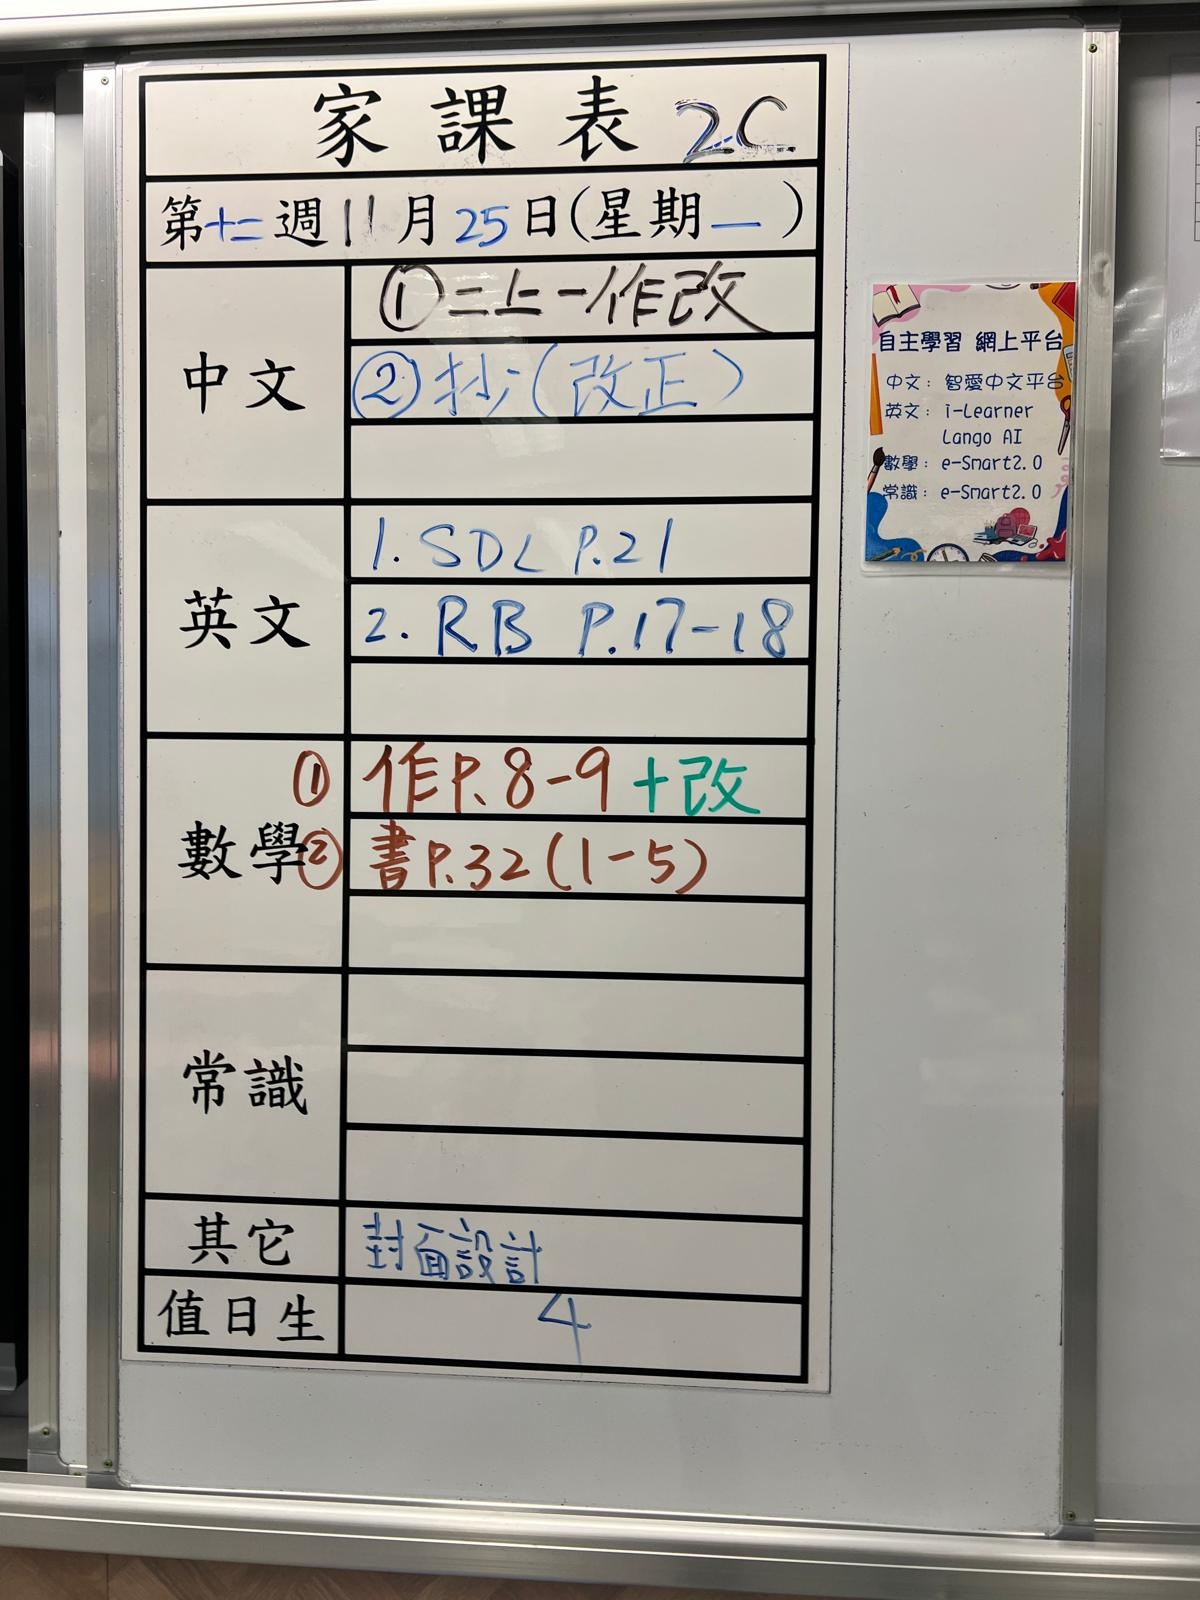 家課表 2C
第十二週11月25日(星期一)
中文
①二上一作改
②抄(改正)
英文
1. SDL P.21
2. RB P.17-18
數學
① 作P.8-9+改
② 書P.32(1-5)
常識
其它
封面設計
值日生
4
自主學習 網上平台
中文: 智愛中文平台
英文: i-Learner
Lango AI
數學: e-Smart2.0
常識: e-Smart2.0